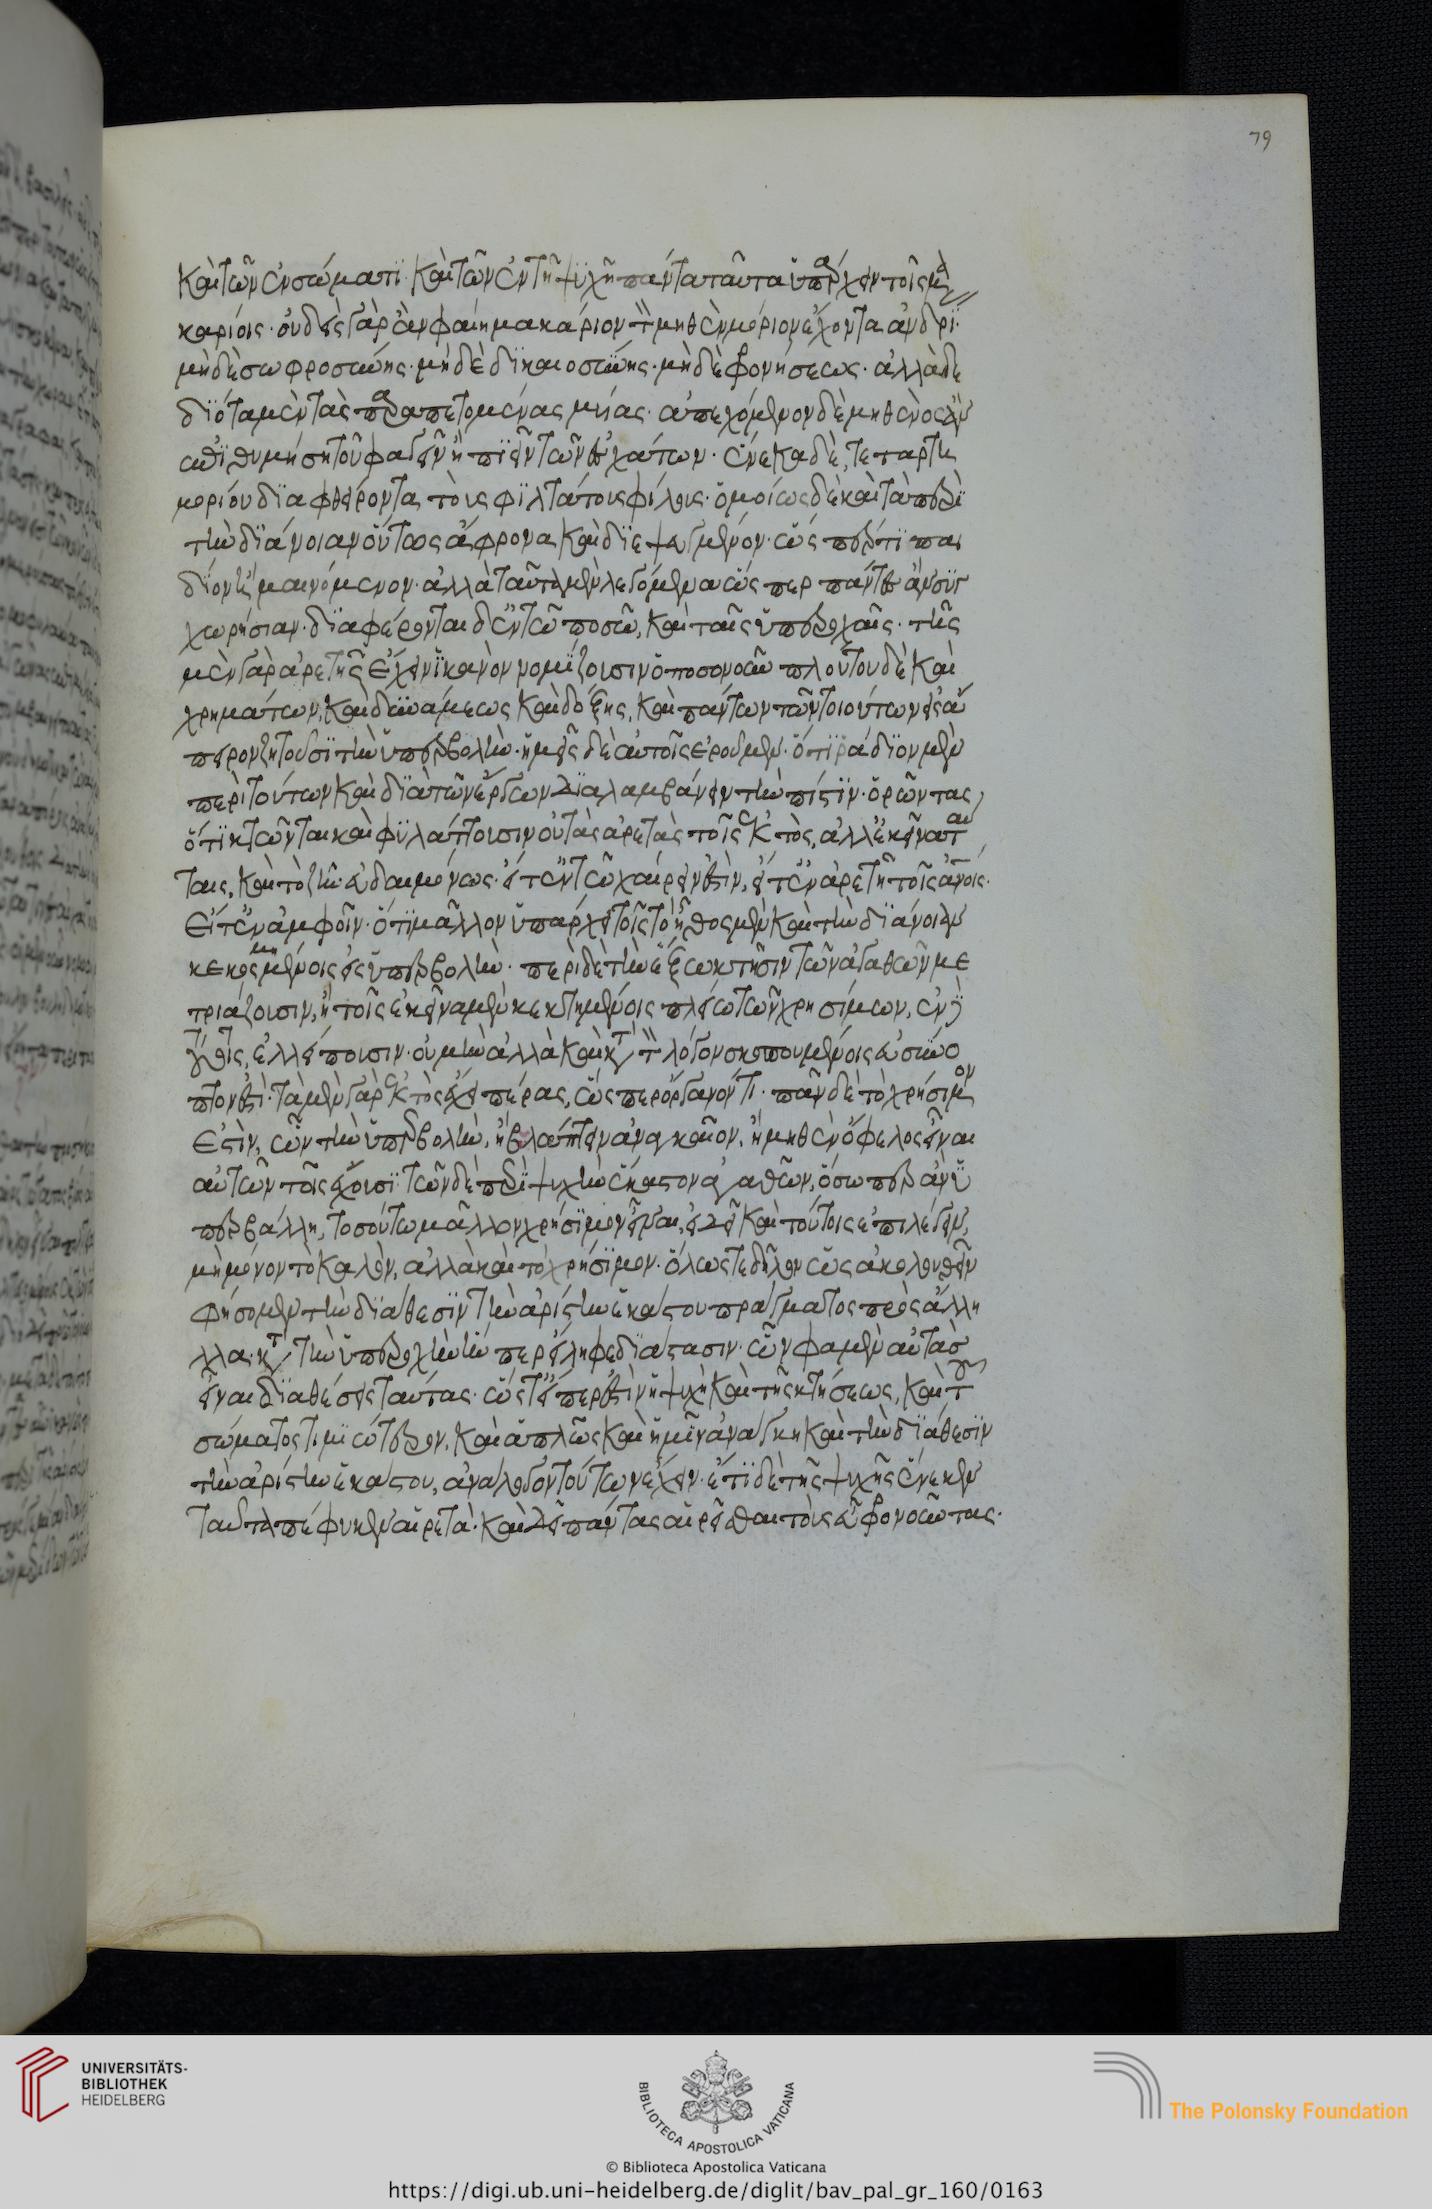 79
καὶ τῶν ἐν σώματι· καὶ τῶν ἐν τῆ ψυχῆ πάντα ταῦτα ὑπάρχειν τοῖς μα
καρίοις· οὐδεὶς γὰρ ἂν φαίη μακάριον τὸν μηθὲν μόριον ἔχοντα ἀνδρί·
μηδὲ σωφροσύνης· μηδὲ δικαιοσύνης· μηδὲ φρονήσεως· ἀλλὰ δε
διότα μὲν τὰς παραπετομένας μυίας· ἀπεχόμενον δὲ μηθενὸς ἂν
ἐπιθυμήση τοῦ φαγεῖν ἢ πιεῖν τῶν ἐσχάτων· ἕνεκα δὲ τεταρτη
μορίου διαφθείροντα τοὺς φιλτάτους φίλους· ὁμοίως δὲ καὶ τὰ περὶ
τὴν διάνοιαν οὕτως ἄφρονα καὶ διεψευσμένον· ὥσπερ τι παι
δίον ἢ μαινόμενον· ἀλλὰ ταῦτα μὲν λεγόμενα ὥσπερ πάντες ἂν συγ
χωρήσιαν· διαφέρονται δ' ἐν τῶ ποσῶ, καὶ ταῖς ὑπεροχαῖς· τῆς
μὲν γὰρ ἀρετῆς ἔχειν ἱκανὸν νομίζουσιν ὁποσονοῦν πλούτου δὲ καὶ
χρημάτων, καὶ δυνάμεως καὶ δόξης, καὶ πάντων τῶν τοιούτων εἰς ἄ
πειρον ζητοῦσι τὴν ὑπερβολήν· ἡμεῖς δὲ αὐτοῖς ἐροῦμεν· ὅτι ῥάδιον μὲν
περὶ τούτων καὶ διὰ τῶν ἔργων διαλαμβάνειν τὴν πίστιν· ὁρῶντας
ὅτι κτῶνται καὶ φυλάττουσιν οὐ τὰς ἀρετὰς τοῖς ἐκτὸς, ἀλλ' ἐκεῖνα ταύ
ταις, καὶ τὸ ζῆν εὐδαιμόνως· εἴτ' ἐν τῶ χαίρειν ἐστὶν, εἴτ' ἐν ἀρετῆ τοῖς ἀνοις·
εἴτ' ἐν ἀμφοῖν· ὅτι μᾶλλον ὑπάρχει τοῖς τὸ ἦθος μὲν καὶ τὴν διάνοιαν
κεκοσμημένοις εἰς ὑπερβολήν· περὶ δὲ τὴν ἔξω κτῆσιν τῶν ἀγαθῶν με
τριάζουσιν, ἢ τοῖς ἐκεῖνα μὲν κεκτημένοις πλείω τῶν χρησίμων, ἐν
τούτοις, ἐλλείπουσιν· οὐ μὴν ἀλλὰ καὶ κατὰ τὸν λόγον σκοπουμένοις εὐσύνο
πτον ἐστί· τὰ μὲν γὰρ ἐκτὸς ἔχει πέρας, ὥσπερ ὄργανόν τι· πᾶν δὲ τὸ χρήσιμον
ἐστὶν, ὧν τὴν ὑπερβολὴν, ἢ βλάπτειν ἀναγκαῖον, ἢ μηθὲν ὄφελος εἶναι
αὐτῶν τοῖς ἔχουσι· τῶν δὲ περὶ ψυχὴν ἕκαστον ἀγαθῶν, ὅσω περ ἂν ὑ
περβάλλη, τοσούτω μᾶλλον χρήσιμον εἶναι, εἰ δεῖ καὶ τούτοις ἐπιλέγειν,
μὴ μόνον τὸ καλὸν, ἀλλὰ καὶ τὸ χρήσιμον· ὅλως τε δῆλον ὡς ἀκολουθεῖν
φήσομεν τὴν διάθεσιν τὴν ἀρίστην ἑκάστου πράγματος πρὸς ἄλλη
λλα· κατὰ τὴν ὑπεροχὴν ἥνπερ εἴληφε διάστασιν· ὧν φαμὲν αὐτὰς
εἶναι διαθέσεις ταύτας· ὥστ' εἴπερ ἐστὶν ἡ ψυχὴ καὶ τῆς κτήσεως, καὶ τοῦ
σώματος τιμιώτερον, καὶ ἁπλῶς καὶ ἡμῖν ἀνάγκη καὶ τὴν διάθεσιν
τὴν ἀρίστην ἑκάστου, ἀνάλογον τούτων ἔχειν· ἔτι δὲ τῆς ψυχῆς ἕνεκεν
ταῦτα πέφυκεν αἱρετά· καὶ δεῖ πάντας αἱρεῖσθαι τοὺς εὖ φρονοῦντας·
UNIVERSITÄTS-
BIBLIOTHEK
HEIDELBERG
BIBLIOTECA APOSTOLICA VATICANA
The Polonsky Foundation
© Biblioteca Apostolica Vaticana
https://digi.ub.uni-heidelberg.de/diglit/bav_pal_gr_160/0163